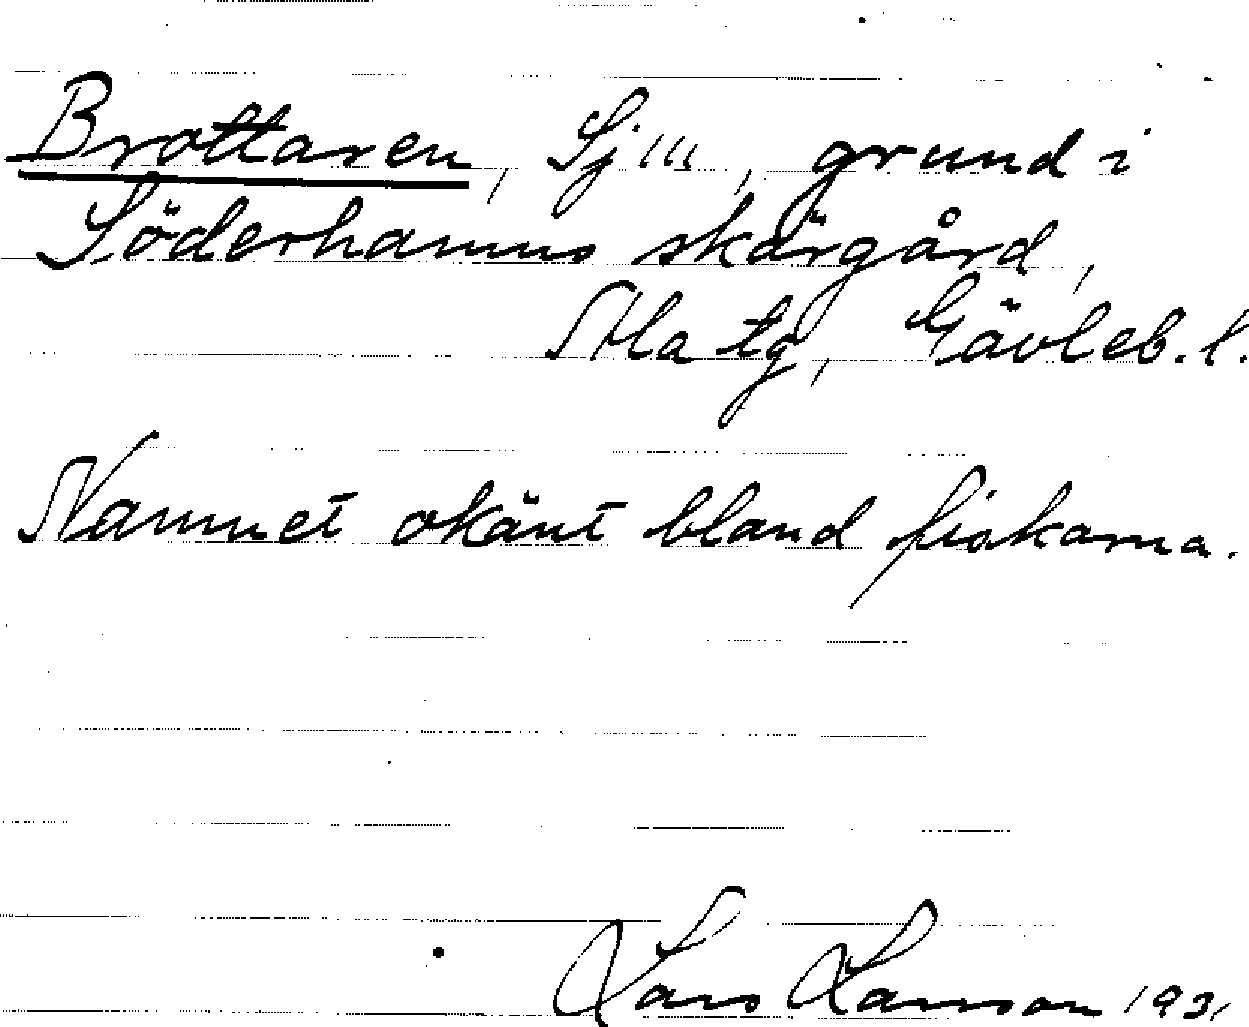 Brottaren, Sj 111, grund i
Söderhamns skärgård,
Ala tg, Gävleb. l.
Namnet okänt bland fiskarna.
Lars Larsson 193